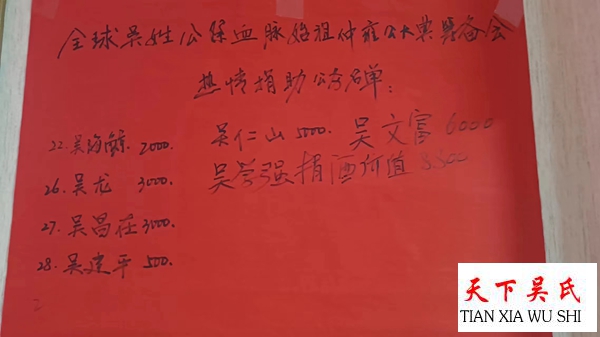 全球吴姓公系血脉始祖仲雍公大典筹备会
热情捐助公者名单:
22.吴海 2000.
吴仁山 5000. 吴文富 6000
26.吴龙 3000.
吴学强捐酒价值 8800
27.吴昌在 3000.
28.吴建平 500.
天下吴氏
TIAN XIA WU SHI